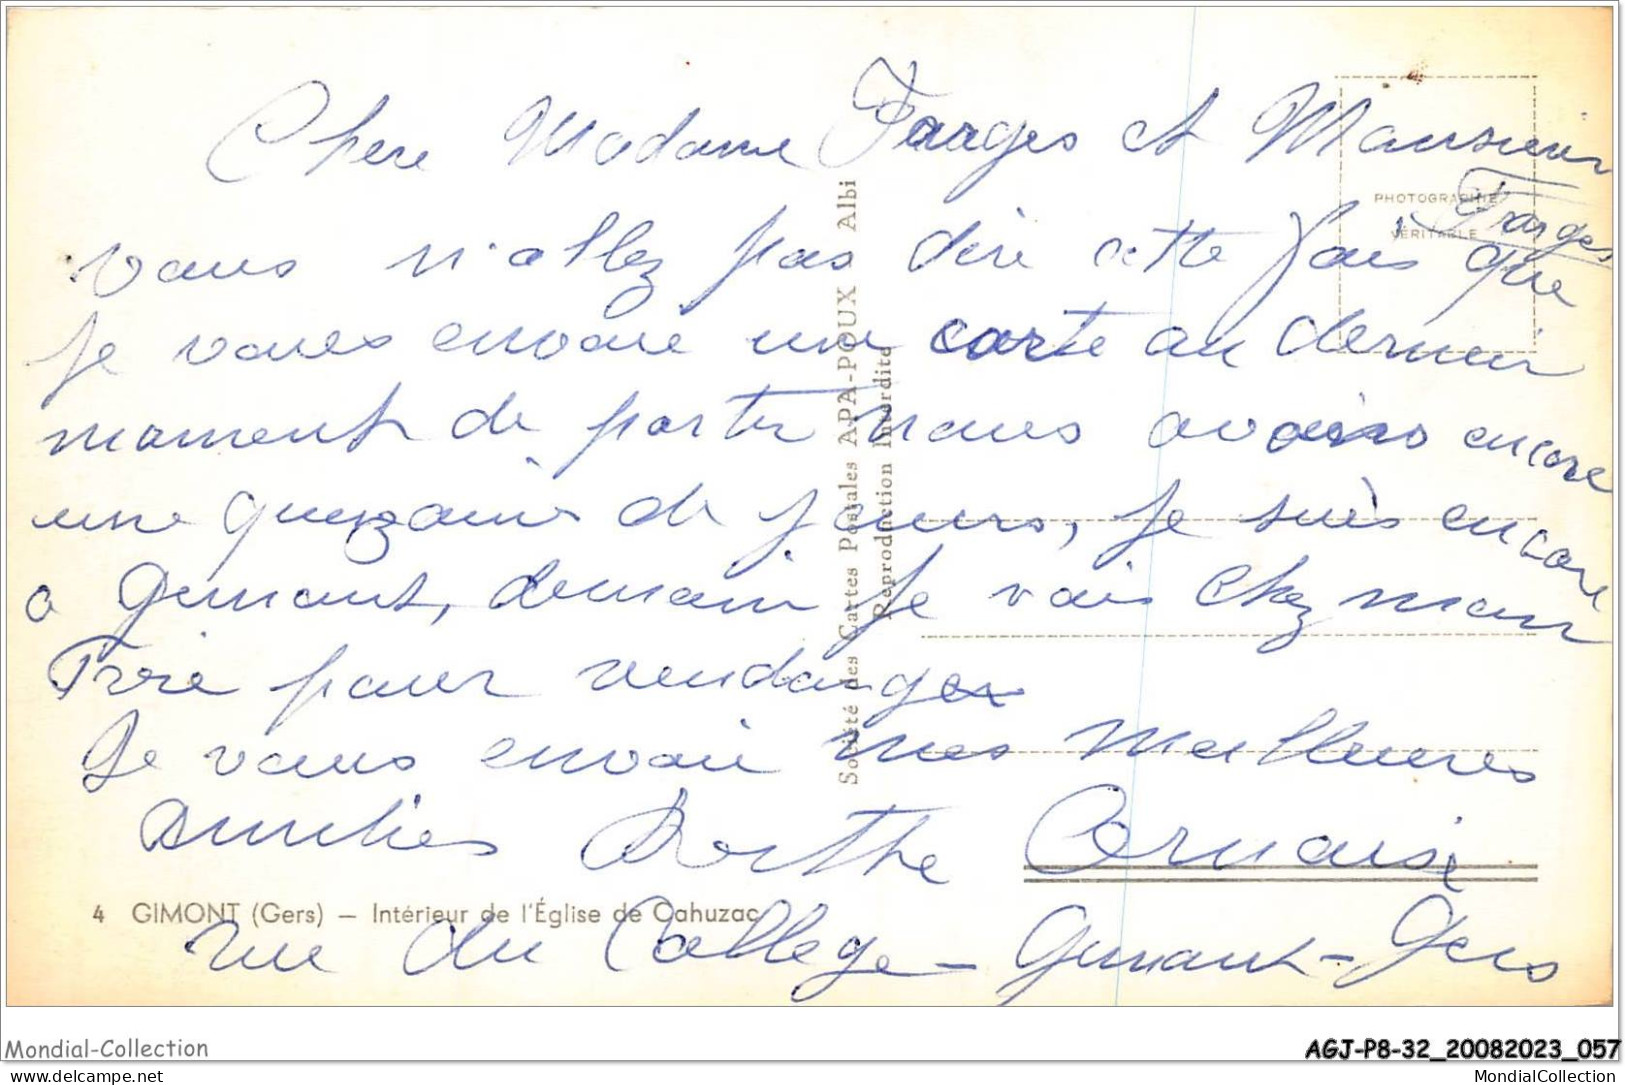 Chere Madame Farges et Monsieur
Farges
vous n'allez pas dire cette fois que
je vous envoie une carte au dernier
moment de partir nous avons encore
une quinzaine de jours, je suis encore
a Gimont, demain je vais chez mon
Frère pour vendanger
Je vous envoie mes meilleures
Amitiés Berthe
rue du Collège - Gimont - Gers
PHOTOGRAPHIE
VÉRITABLE
Société des Cartes Postales APA-POUX Albi
Reproduction Interdite
4 GIMONT (Gers) — Intérieur de l'Église de Cahuzac
Mondial-Collection
AGJ-P8-32_20082023_057
delcampe.net
MondialCollection